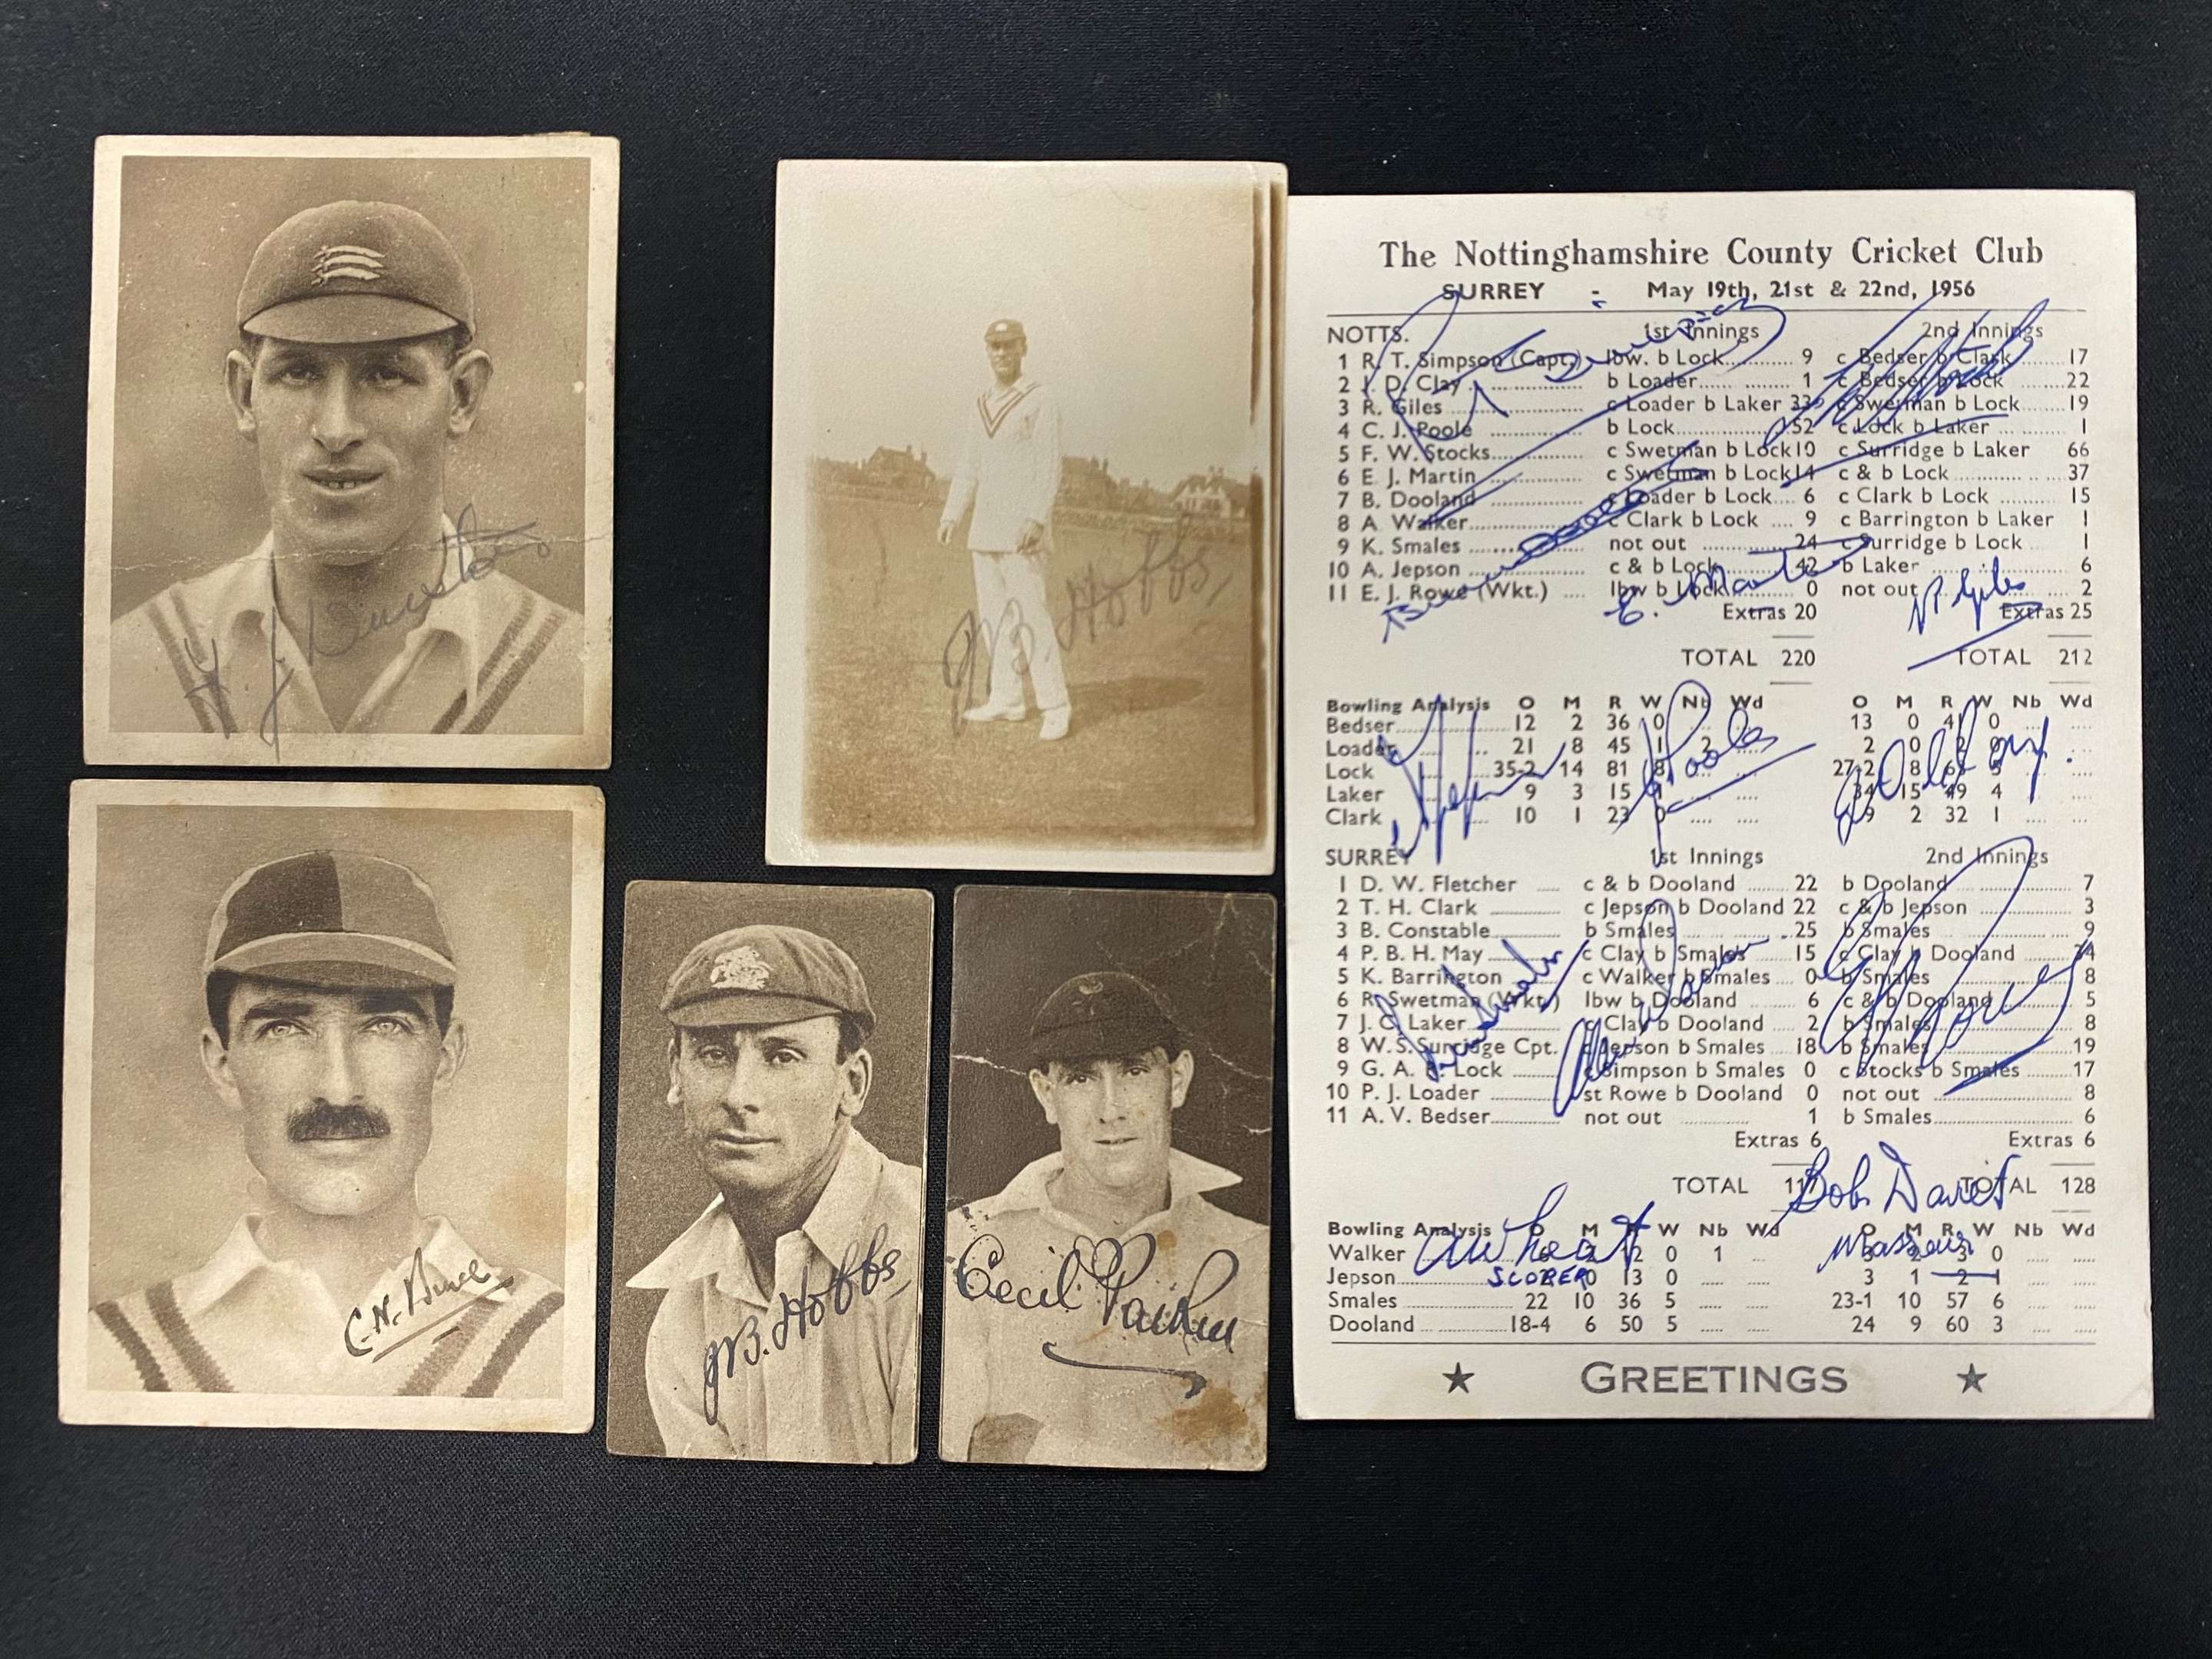 J.B. Hobbs
C.N. Bruce
J.B. Hobbs
Cecil Parkin
The Nottinghamshire County Cricket Club
SURREY - May 19th, 21st & 22nd, 1956
NOTTS. 1st Innings 2nd Innings
1 R. T. Simpson (Capt.) lbw. b Lock 9 c Bedser b Clark 17
2 J. D. Clay b Loader 1 c Bedser b Lock 22
3 R. Giles c Loader b Laker 33 c Swetman b Lock 19
4 C. J. Poole b Lock 52 c Lock b Laker 1
5 F. W. Stocks c Swetman b Lock 10 c Surridge b Laker 66
6 E. J. Martin c Swetman b Lock 14 c & b Lock 37
7 B. Dooland c Loader b Lock 6 c Clark b Lock 15
8 A. Walker c Clark b Lock 9 c Barrington b Laker 1
9 K. Smales not out 24 c Surridge b Lock 1
10 A. Jepson c & b Lock 42 b Laker 6
11 E. J. Rowe (Wkt.) lbw b Lock 0 not out 2
Extras 20 Extras 25
TOTAL 220 TOTAL 212
Bowling Analysis O M R W Nb Wd O M R W Nb Wd
Bedser 12 2 36 0 13 0 41 0
Loader 21 8 45 1 2 2 0 0
Lock 35-2 14 81 8 27-2 8 5
Laker 9 3 15 1 34 15 49 4
Clark 10 1 23 0 9 2 32 1
SURREY 1st Innings 2nd Innings
1 D. W. Fletcher c & b Dooland 22 b Dooland 7
2 T. H. Clark c Jepson b Dooland 22 c & b Jepson 3
3 B. Constable b Smales 25 b Smales 9
4 P. B. H. May c Clay b Smales 15 c Clay b Dooland 34
5 K. Barrington c Walker b Smales 0 b Smales 8
6 R. Swetman (Wkt.) lbw b Dooland 6 c & b Dooland 5
7 J. C. Laker c Clay b Dooland 2 b Smales 8
8 W. S. Surridge Cpt. c Jepson b Smales 18 b Smales 19
9 G. A. R. Lock c Simpson b Smales 0 c Stocks b Smales 17
10 P. J. Loader st Rowe b Dooland 0 not out 8
11 A. V. Bedser not out 1 b Smales 6
Extras 6 Extras 6
TOTAL 117 TOTAL 128
Bob Davies
Masseur
Bowling Analysis O M R W Nb Wd O M R W Nb Wd
Walker 12 0 1 3 0
Jepson 0 13 0 3 1 2 1
Smales 22 10 36 5 23-1 10 57 6
Dooland 18-4 6 50 5 24 9 60 3
A Wheat
SCORER
E. Martin
R Giles
C Poole
★ GREETINGS ★